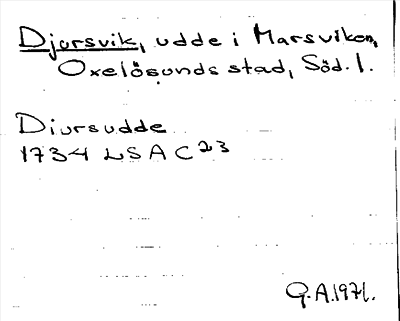 Djursvik, udde i Marsviken,
Oxelösunds stad, Söd. l.
Diursudde
1734 LSA C23
G.A. 1971.